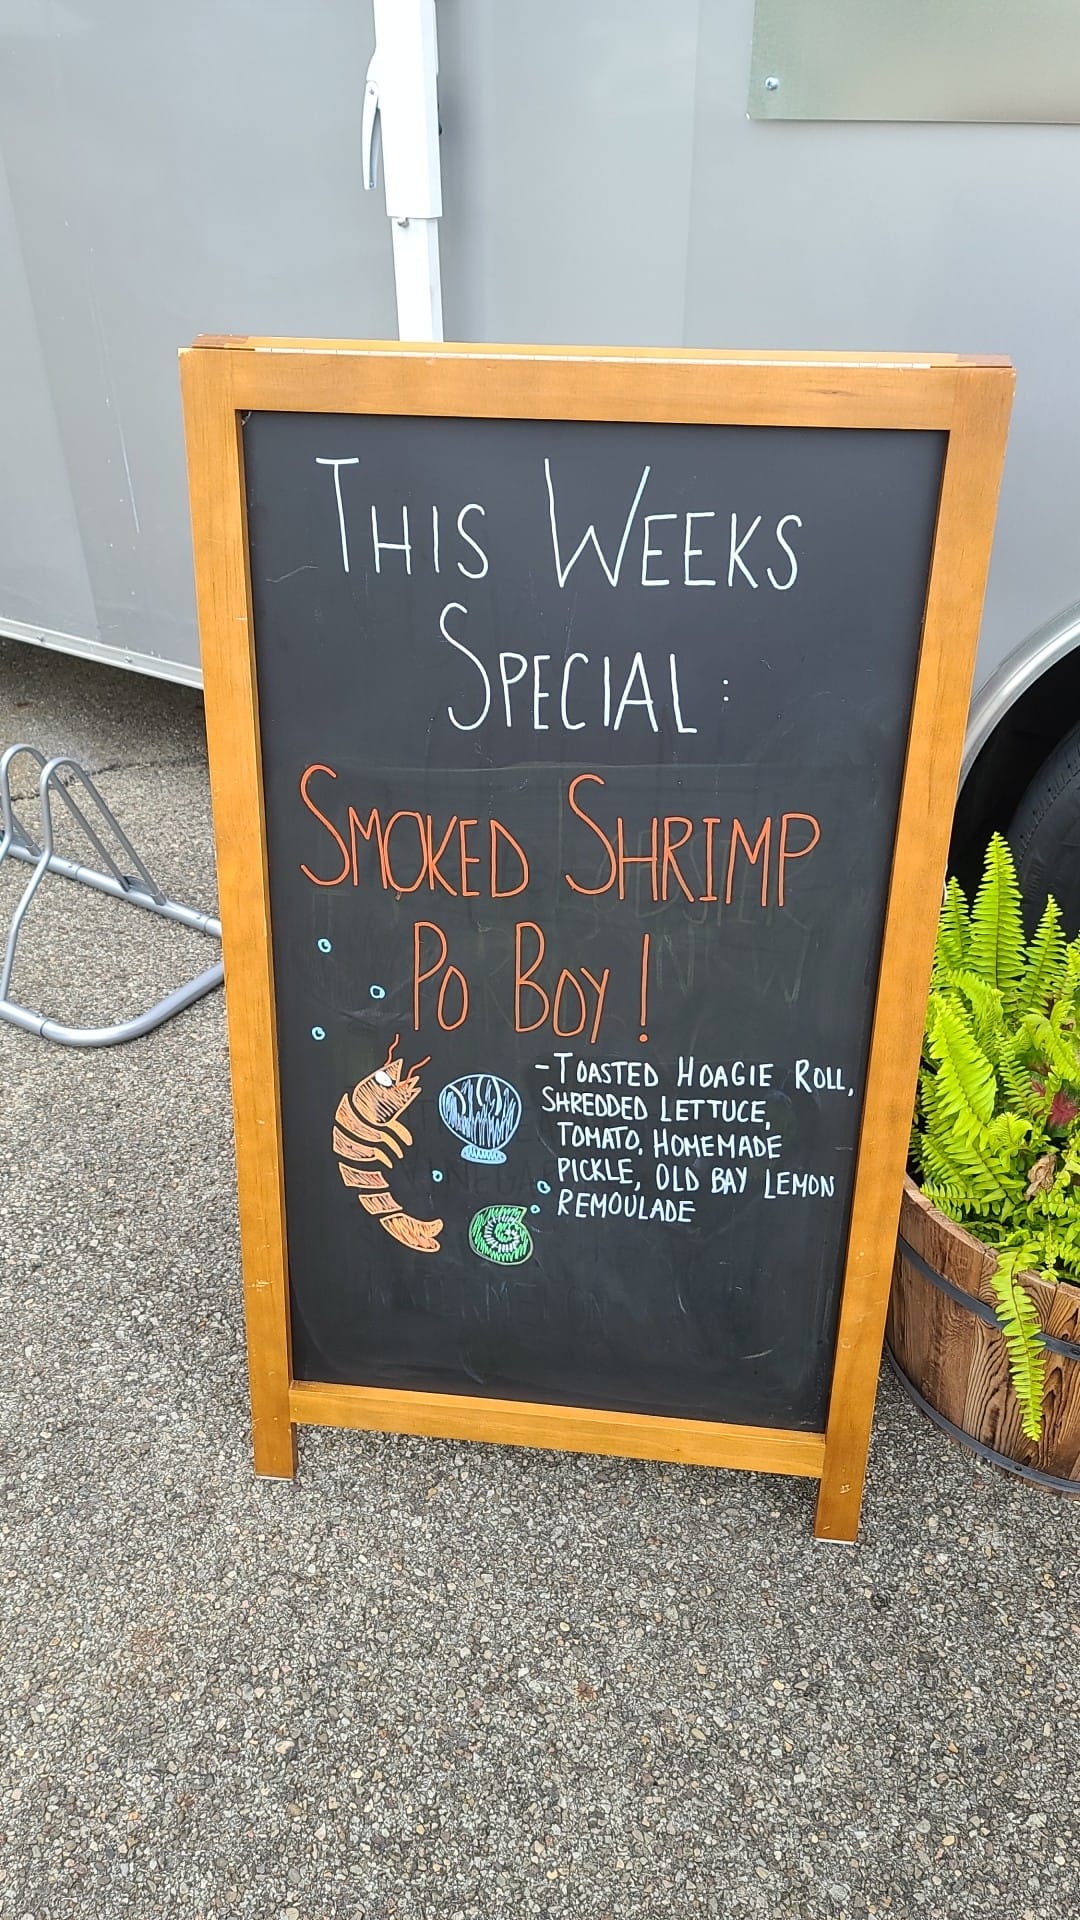 THIS WEEKS
SPECIAL:
SMOKED SHRIMP
PO BOY!
-TOASTED HOAGIE ROLL,
SHREDDED LETTUCE,
TOMATO, HOMEMADE
PICKLE, OLD BAY LEMON
REMOULADE